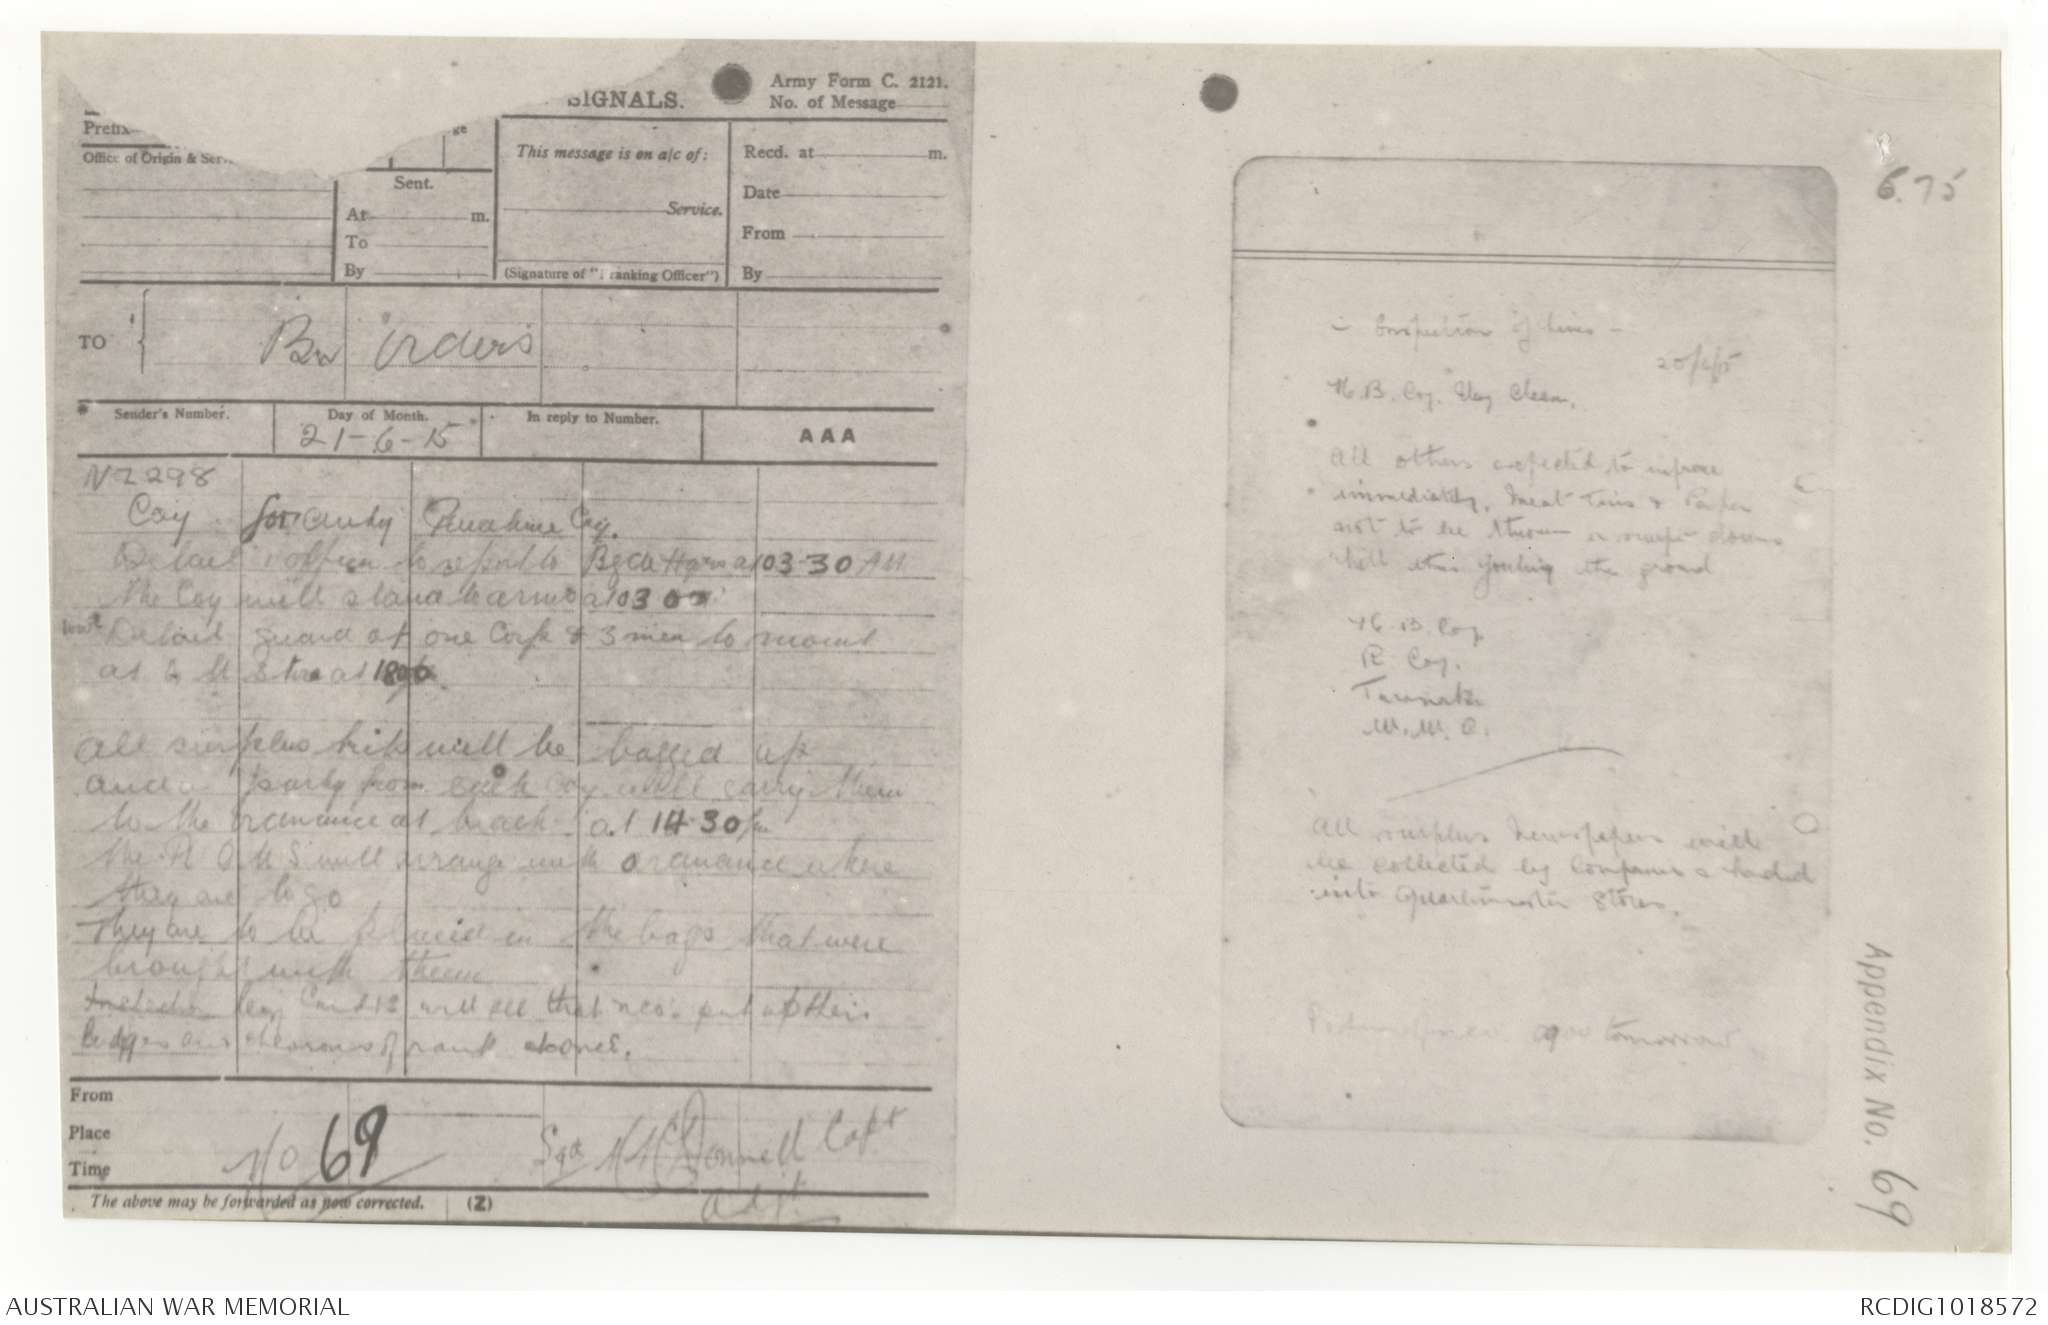 SIGNALS.
Army Form C. 2121.
No. of Message
Prefix
ge
Office of Origin & Serv
Sent.
At m.
To
By
This message is on a/c of:
Service.
(Signature of "Franking Officer")
Recd. at m.
Date
From
By
TO
Bn Orders
Sender's Number.
Day of Month.
In reply to Number.
21-6-15
AAA
NZ298
Coy for duty Coy.
Detail officer to report to Bgde Hqrs at 03-30 AM
the Coy will stand to arms at 03 00
Detail guard of one Corpl & 3 men to mount
at
All surplus kits will be bagged up
and a party from each Coy will carry them
to the ordnance at beach at 14 30
the R Q M S will arrange with ordnance where
they are to go
They are to be placed in the bags that were
brought with them
will see that put up their
badges of rank
From
Place
Time
No 69
Sgd McDonnell Capt
adjt.
The above may be forwarded as now corrected.
(Z)
6.75
- Inspection of lines -
20/6/15
H.B. Coy. Very Clean.
All others expected to improve
immediately, Meat Tins & Paper
not to be thrown
the ground
H.B. Coy
R Coy.
Taranaki
W.W.C.
All surplus newspapers will
be collected by Companies & handed
into Quartermaster Stores.
tomorrow
Appendix No. 69
AUSTRALIAN WAR MEMORIAL
RCDIG1018572